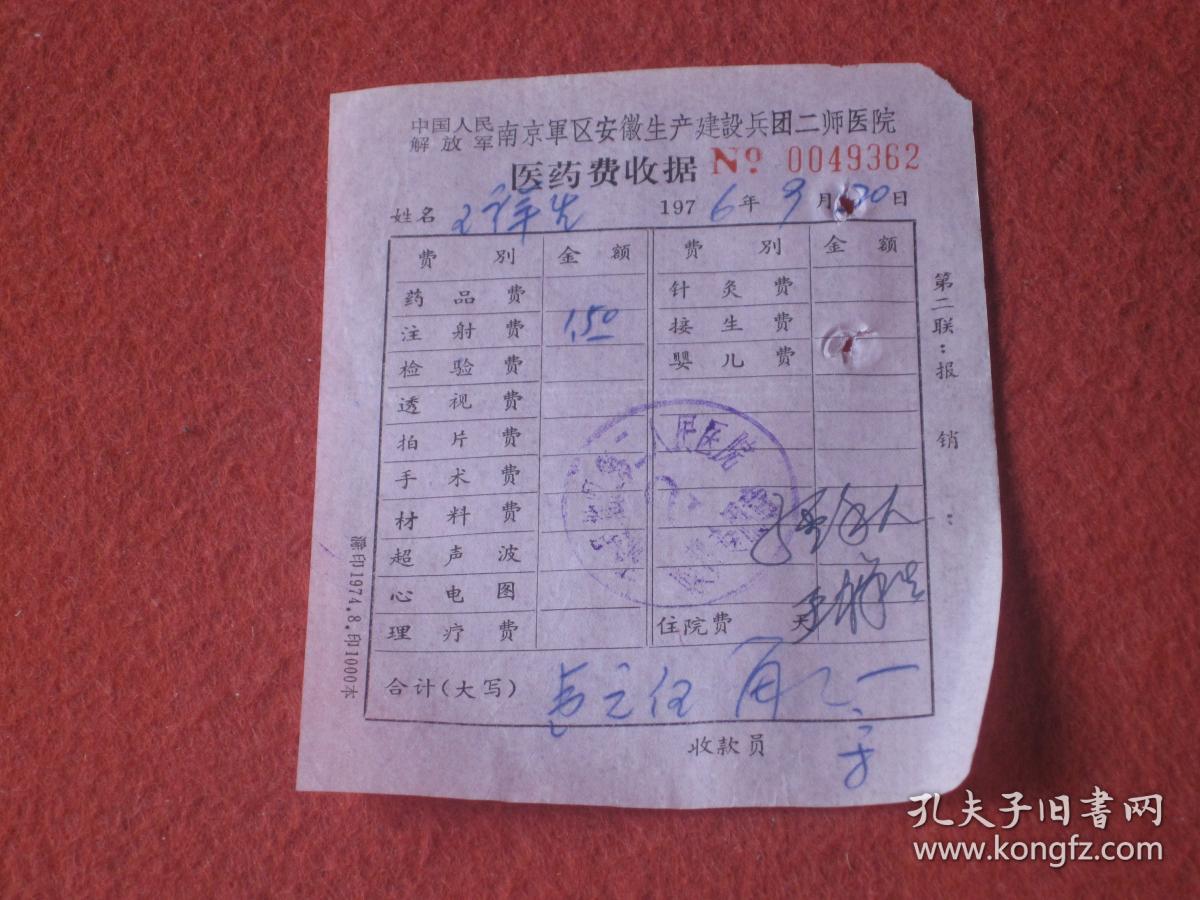 中国人民解放军南京軍区安徽生产建設兵团二师医院
医药费收据 № 0049362
姓名 王祥先 1976年9月20日
费别 金额 费别 金额
药品费 针灸费
注射费 1.50 接生费
检验费 婴儿费
透视费
拍片费
手术费
材料费
超声波
心电图
理疗费 住院费 天
合计(大写)
收款员
第二联:报销
印1974.8.印1000本
人民医院
孔夫子旧書网
www.kongfz.com